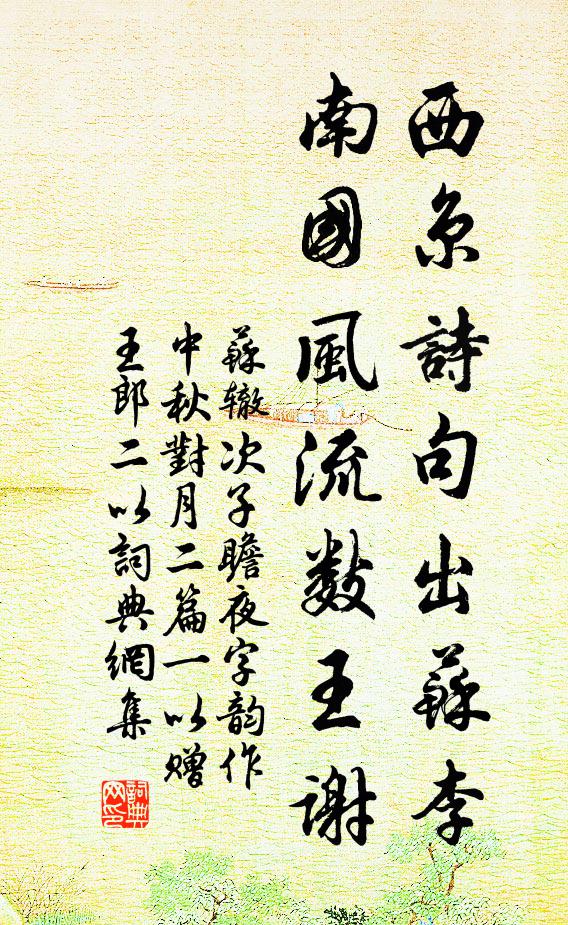 西京詩句出蘇李
南國風流數王謝
蘇辙次子瞻夜字韵作
中秋對月二篇一以赠
王郎二以詞典網集
詞典网印